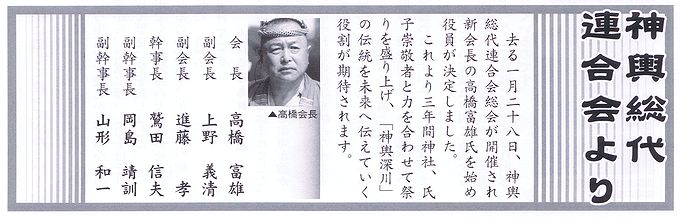 神輿総代
連合会より
去る一月二十八日、神輿
総代連合会総会が開催され
新会長の高橋富雄氏を始め
役員が決定しました。
これより三年間神社、氏
子崇敬者と力を合わせて祭
りを盛り上げ、「神輿深川」
の伝統を未来へ伝えていく
役割が期待されます。
▲高橋会長
会長 高橋 富雄
副会長 上野 義清
副会長 進藤 孝
幹事長 鷲田 信夫
副幹事長 岡島 靖訓
副幹事長 山形 和一